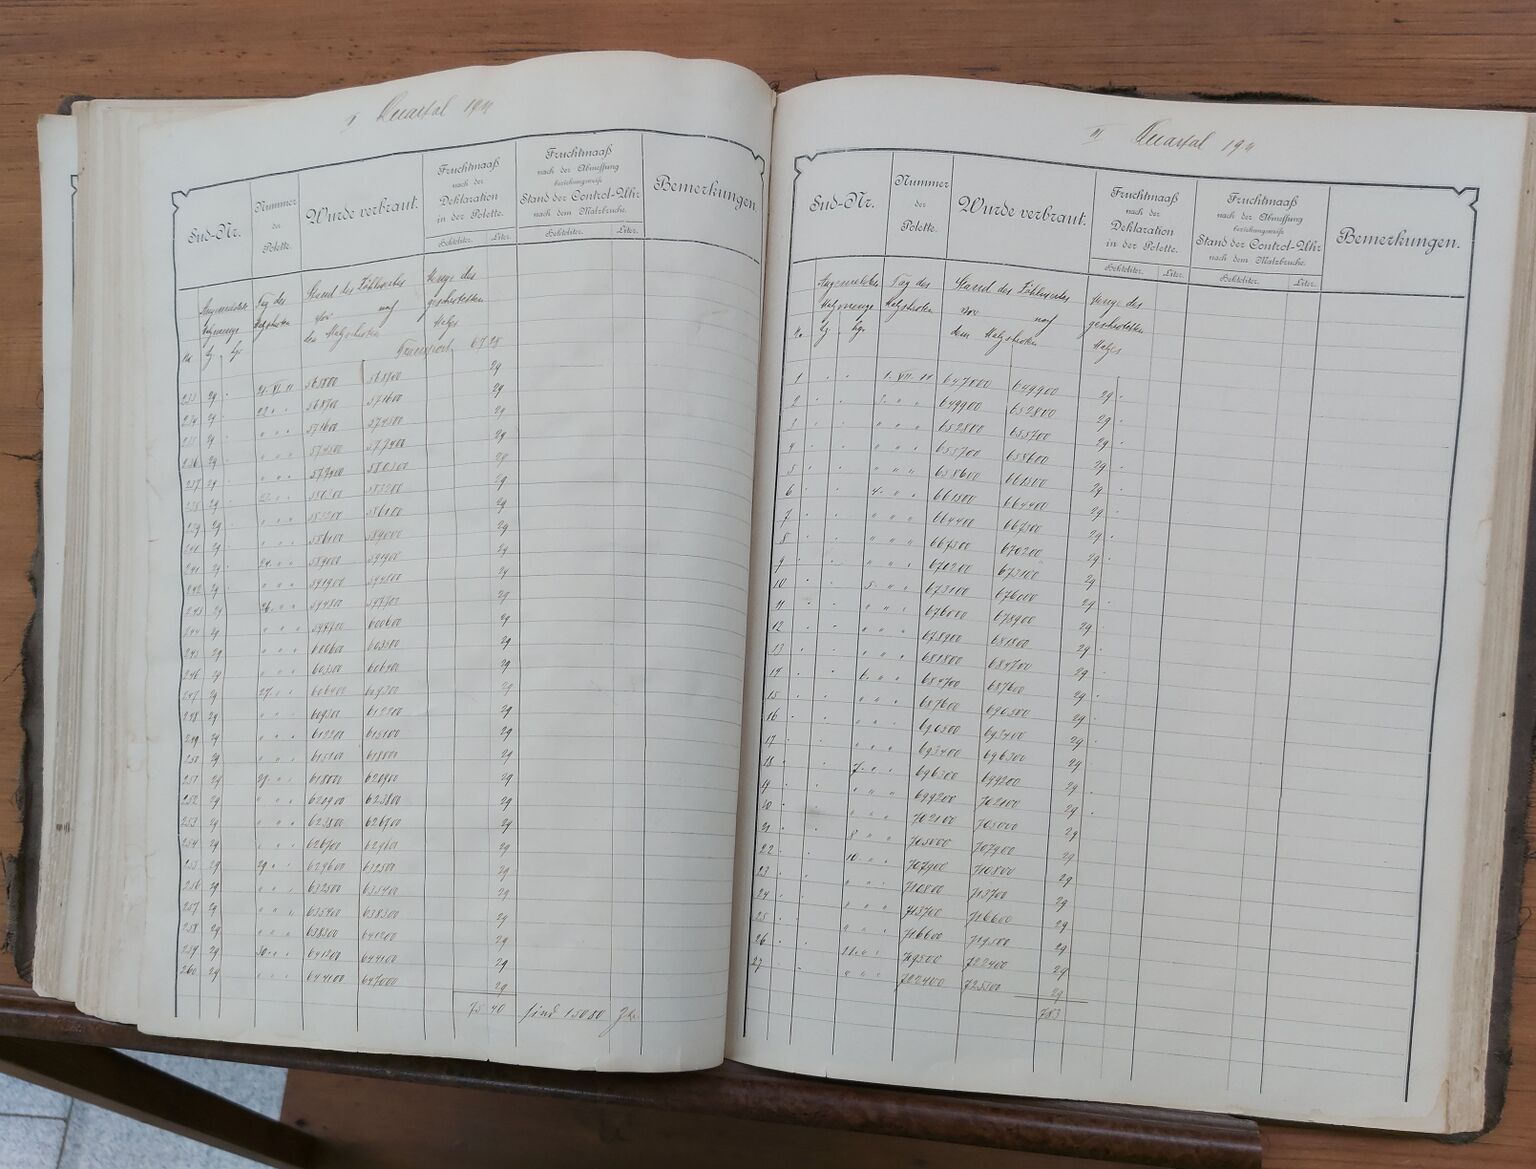 II Quartal 1911
Sud-Nr.
Nummer
der
Polette.
Wurde verbraut.
Fruchtmaaß
nach der
Deklaration
in der Polette.
Hektoliter. Liter.
Fruchtmaaß
nach der Abmessung
beziehungsweise
Stand der Control-Uhr
nach dem Malzbruche.
Hektoliter. Liter.
Bemerkungen.
Tag des
Malzschrotens
Stand des Zählwerkes
vor nach
dem Malzschroten
Menge des
geschroteten
Malzes
Transport 6728
233 29 21. VI. 11 565800 568700 29
234 29 22. " " 568700 571600 29
235 29 " " " 571600 574500 29
236 29 " " " 574500 577400 29
237 29 " " " 577400 580300 29
238 29 23. " " 580300 583200 29
239 29 " " " 583200 586100 29
240 29 " " " 586100 589000 29
241 29 24. " " 589000 591900 29
242 29 " " " 591900 594800 29
243 29 26. " " 594800 597700 29
244 29 " " " 597700 600600 29
245 29 " " " 600600 603500 29
246 29 " " " 603500 606400 29
247 29 27. " " 606400 609300 29
248 29 " " " 609300 612200 29
249 29 " " " 612200 615100 29
250 29 " " " 615100 618000 29
251 29 28. " " 618000 620900 29
252 29 " " " 620900 623800 29
253 29 " " " 623800 626700 29
254 29 " " " 626700 62960 29
255 29 29. " " 629600 632500 29
256 29 " " " 632500 635400 29
257 29 " " " 635400 638300 29
258 29 " " " 638300 641200 29
259 29 30. " " 641200 644100 29
260 29 " " " 644100 647000 29
7540 sind 15080
III Quartal 1911
Sud-Nr.
Nummer
der
Polette.
Wurde verbraut.
Fruchtmaaß
nach der
Deklaration
in der Polette.
Hektoliter. Liter.
Fruchtmaaß
nach der Abmessung
beziehungsweise
Stand der Control-Uhr
nach dem Malzbruche.
Hektoliter. Liter.
Bemerkungen.
Tag des
Malzschrotens
Stand des Zählwerkes
vor nach
dem Malzschroten
Menge des
geschroteten
Malzes
1 " " 1. VII. 11 647000 649900 29
2 " " 3. " " 649900 652800 29
3 " " " " " 652800 655700 29
4 " " " " " 655700 658600 29
5 " " " " " 658600 661500 29
6 " " 4. " " 661500 664400 29
7 " " " " " 664400 667300 29
8 " " " " " 667300 670200 29
9 " " " " " 670200 673100 29
10 " " 5. " " 673100 676000 29
11 " " " " " 676000 678900 29
12 " " " " " 678900 681800 29
13 " " " " " 681800 684700 29
14 " " 6. " " 684700 687600 29
15 " " " " " 687600 690500 29
16 " " " " " 690500 693400 29
17 " " " " " 693400 696300 29
18 " " 7. " " 696300 699200 29
19 " " " " " 699200 702100 29
20 " " " " " 702100 705000 29
21 " " 8 " " 705000 707900 29
22 " " 10. " " 707900 710800 29
23 " " " " " 710800 713700 29
24 " " " " " 713700 716600 29
25 " " " " " 716600 719500 29
26 " " 11. " " 719500 722400 29
27 " " " " " 722400 725300 29
783